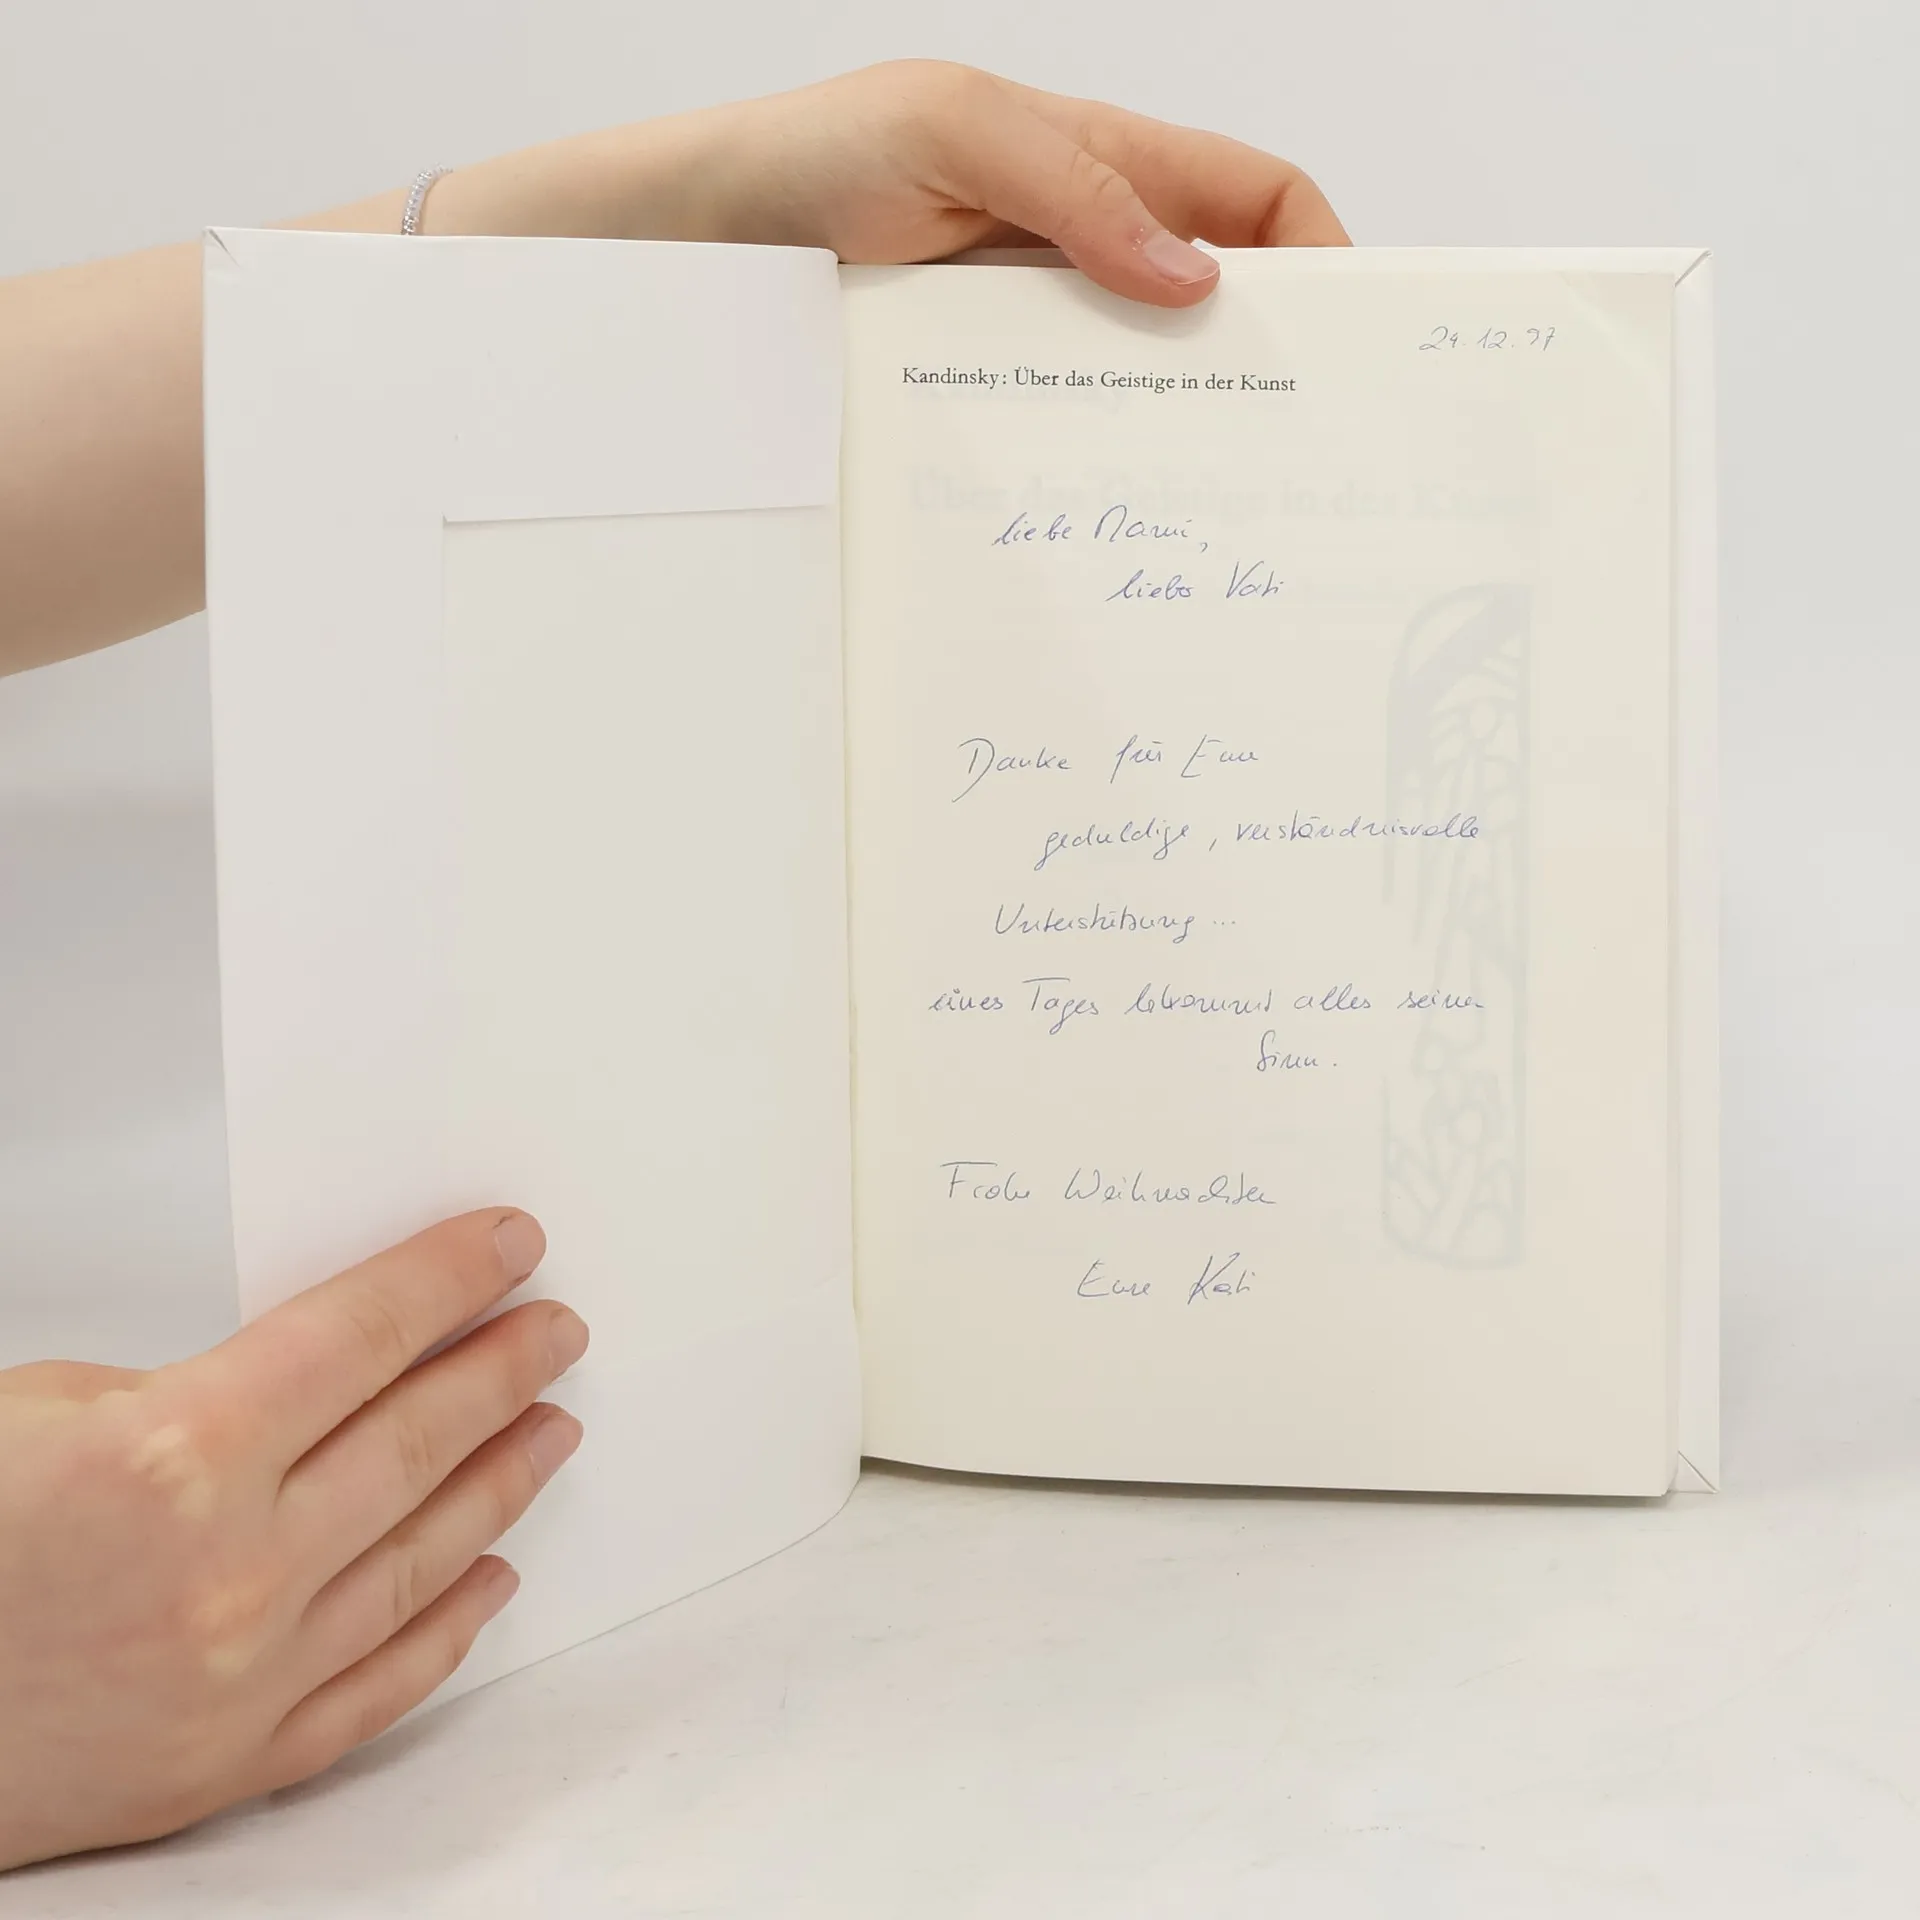 24.12.97
Kandinsky: Über das Geistige in der Kunst
liebe Mami,
lieber Vati
Danke für Eure
geduldige, verständnisvolle
Unterstützung ...
eines Tages bekommt alles seinen
Sinn.
Frohe Weihnachten
Eure Kati